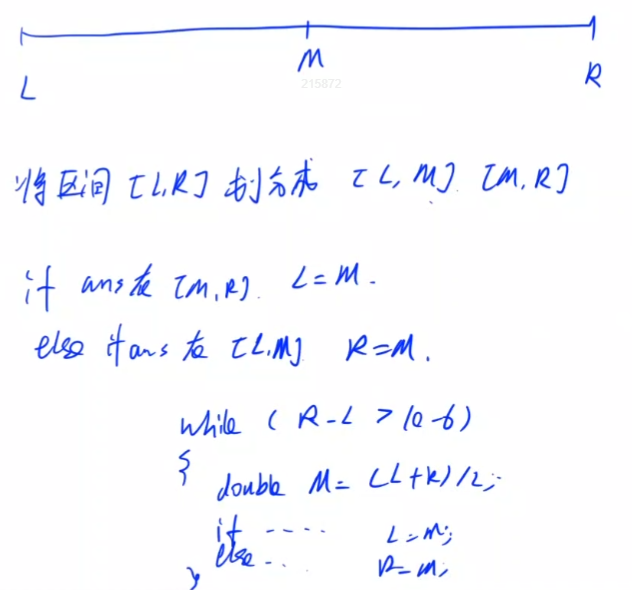 L M R
215872
将区间 [L,R] 划分成 [L, M] [M, R]
if ans在 [M,R]. L=M.
else if ans 在 [L,M] R=M.
while ( R-L > 1e-6)
{
double M= (L+R)/2;
if ---- L=M;
else --. R=M;
}